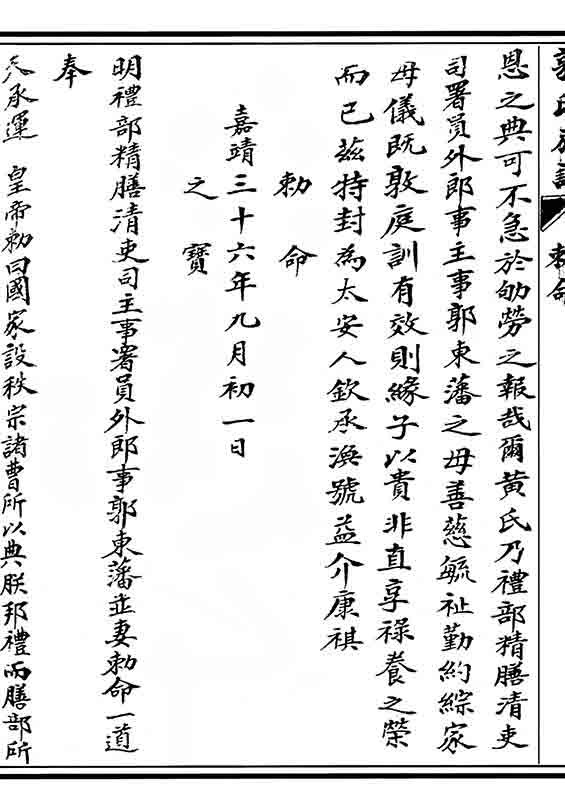 郭氏族譜
敕命
恩之典可不急於劬勞之報哉爾黃氏乃禮部精膳清吏
司署員外郎事主事郭東藩之母善慈毓祉勤約綜家
母儀既敦庭訓有效則緣子以貴非直享祿養之榮
而已茲特封為太安人欽承渙號益介康祺
勅命
嘉靖三十六年九月初一日
之寶
明禮部精膳清吏司主事署員外郎事郭東藩並妻勅命一道
奉
天承運 皇帝勅曰國家設秩宗諸曹所以典朕邦禮而膳部所